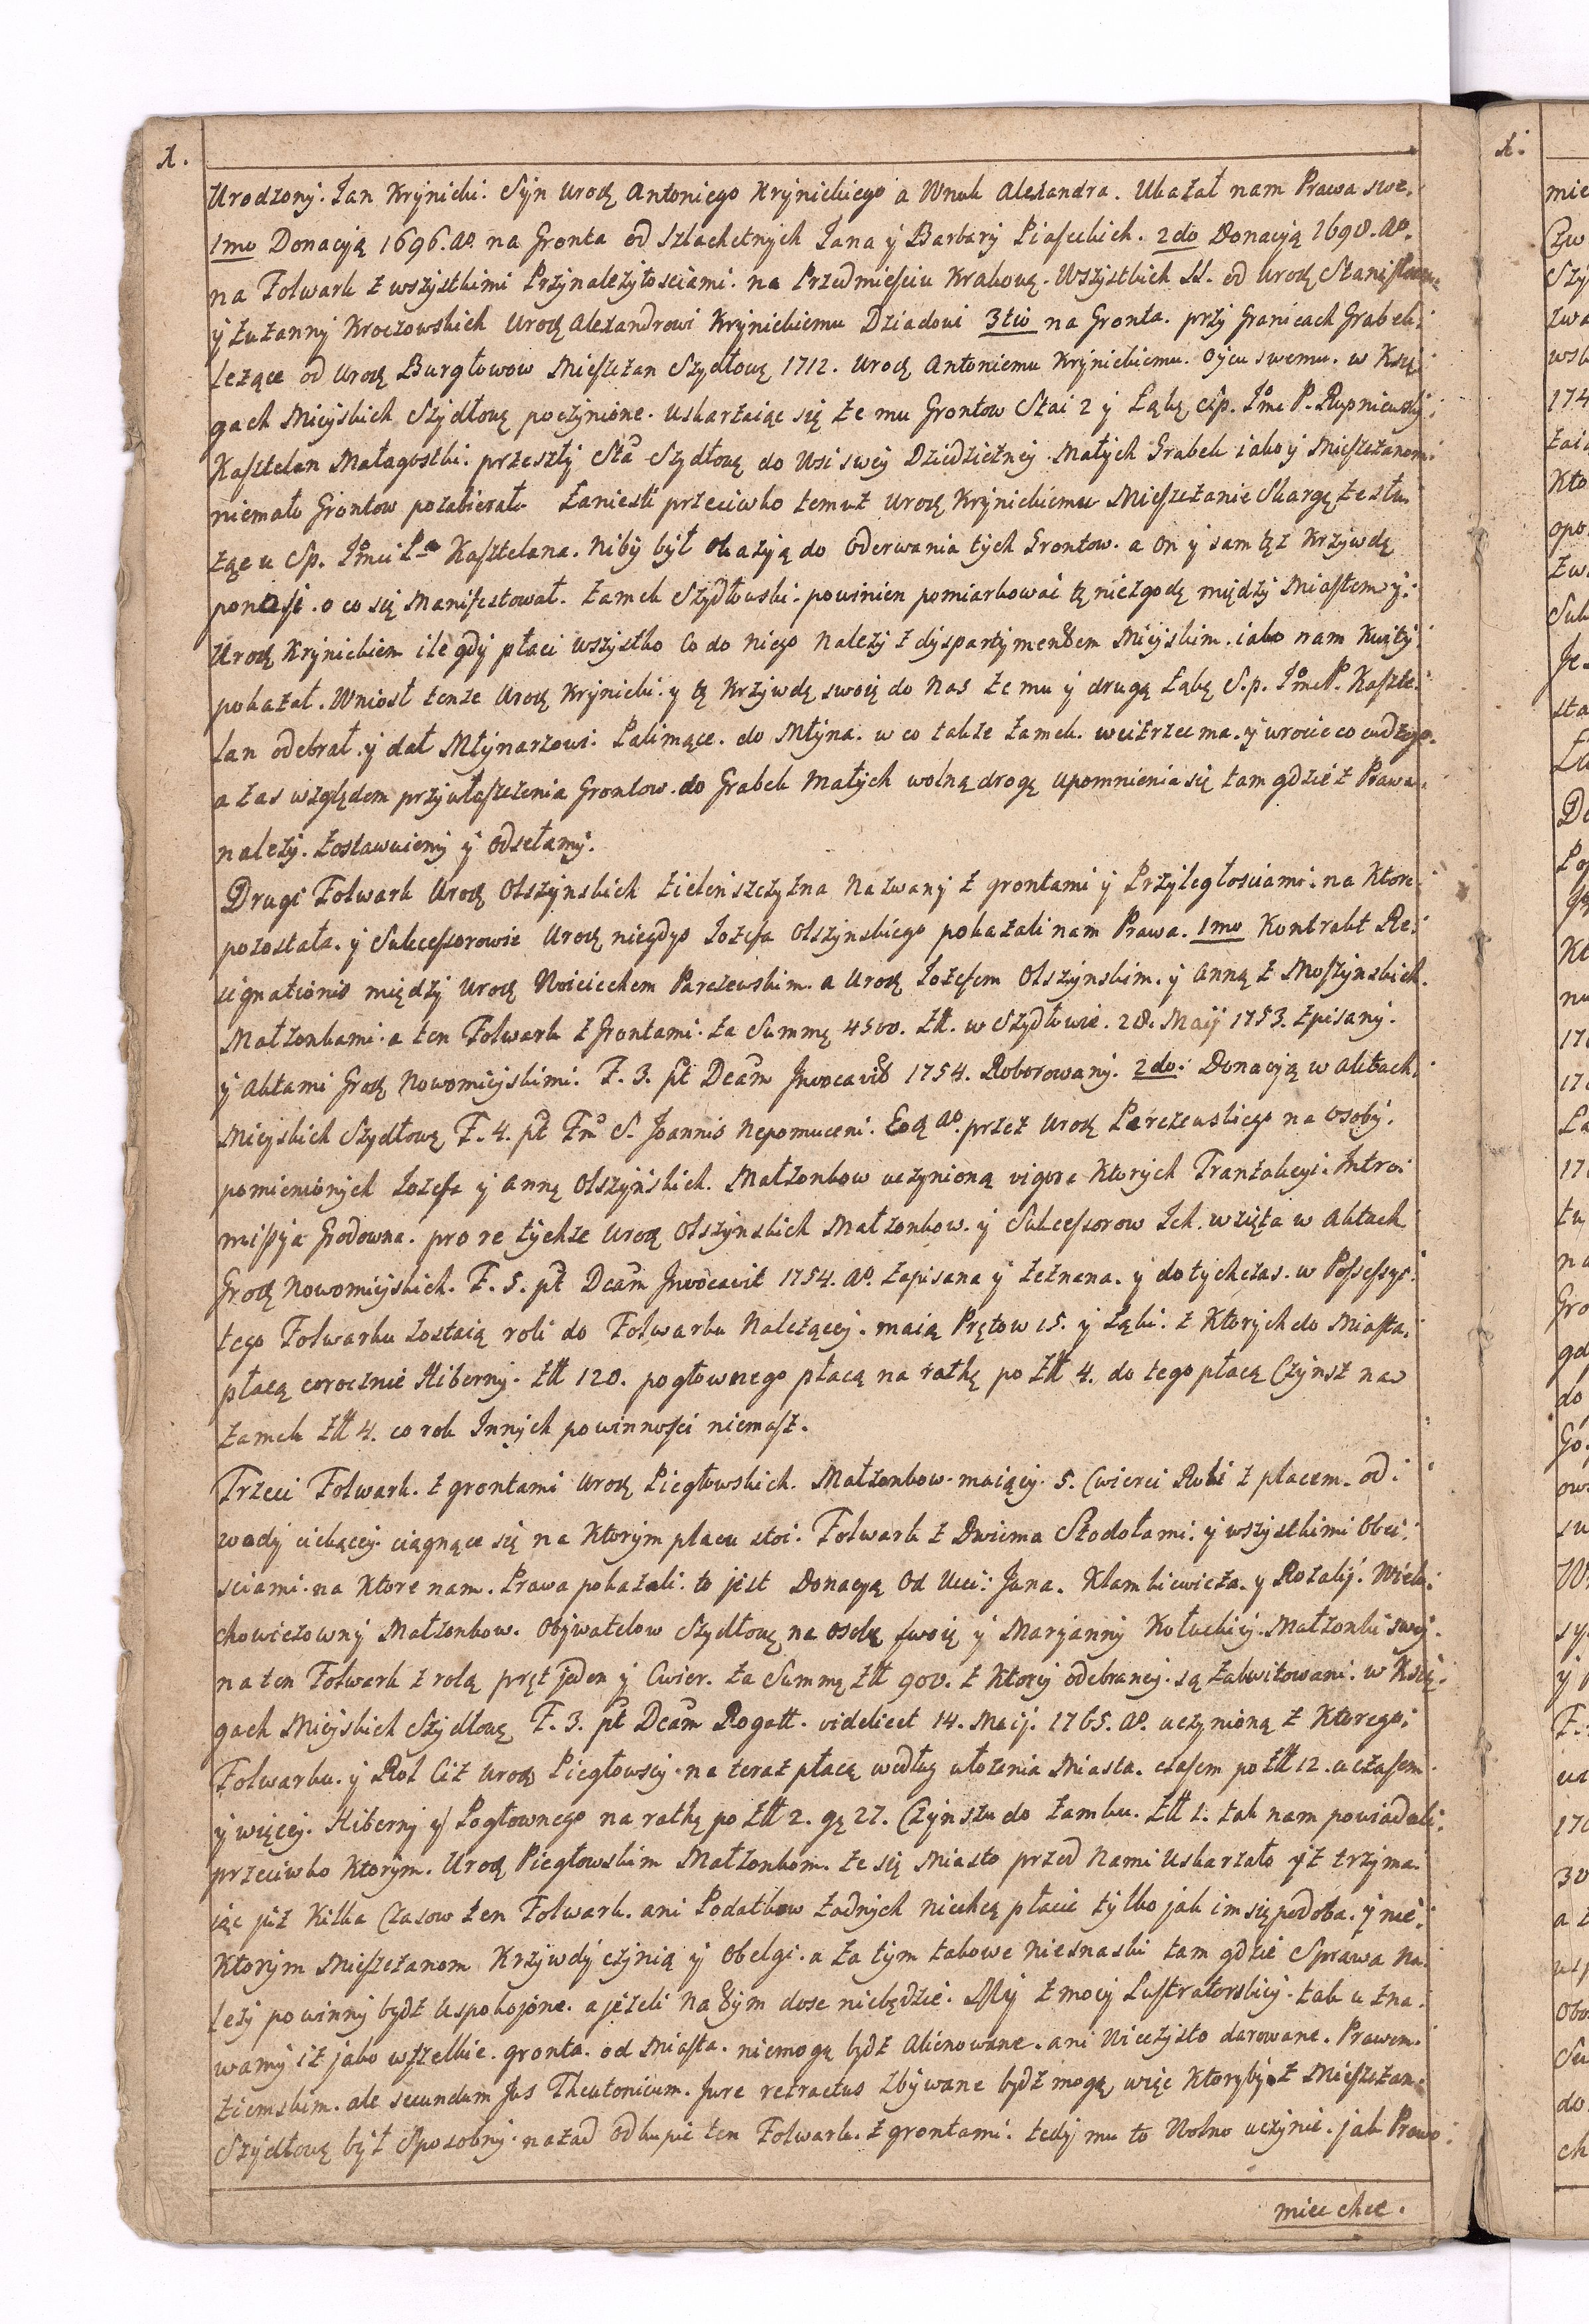 1.
Urodzony. Jan Krynicki. Syn Urodz Antoniego Krynickiego a Wnuk Alexandra. Ukazał nam Prawa swe.
1mo Donacyą 1696. Ao. na Gronta od Szlachetnych Jana y Barbary Piaseckich. 2do Donacyą 1698. Ao.
na Folwark z wszystkimi Przynależytosciami. na Przedmiesciu Krakows. Wszystkich SS. od Urodz Stanisława
y Zuzanny Kroczowskich Urodz Alexandrowi Krynickiemu Dziadowi 3tio na Gronta. przy Granicach Grabek.
Leżące od Urodz Burgłowow Mieszczan Szydłows 1712. Urodz Antoniemu Krynickiemu. Oycu swemu. w Księ
gach Mieyskich Szydłows poczynione. uskarzaiąc się że mu Grontow Stai 2 y Łąkę Sp. Jmć P. Rupniewski
Kasztelan Małagoski. przeszły Sta Szydłows do Wsi swey Dziedziczney Małych Grabek iako y Mieszczanom
niemało Grontow pozabierał. Zaniesli przeciwko temuż Urodz Krynickiemu Mieszczanie Skargę że słu
żąc u Sp. Jmci Pa Kasztelana. Niby był okazyą do Oderwania tych Grontow. a On y sam tęż Krzywdę
ponosi. o co się Manifestował. Zamek Szydłowski. powinien pomiarkować tę niezgodę między Miastem y
Urodz Krynickiem ile gdy płaci wszystko Co do niego Należy z dyspartymentem Mieyskim. iako nam Kwity
pokazał. Wniosł tenże Urodz Krynicki. y tę Krzywdę swoię do Nas że mu y drugą Łąkę S.p. Jmć P. Kaszte
lan odebrał y dał Młynarzowi. Palimące. do Młyna. w co także Zamek. weitrzec ma. y wrocic co cudzego.
a zas względem przywłaszczenia Grontow. do Grabek Małych wolną drogę upomnienia się tam gdzie z Prawa
należy. Zostawuiemy y Odsełamy.
Drugi Folwark Urodz Olszynskich Zielenszczyzna Nazwany z grontami y Przyległosciami. na Ktore
pozostała. y Sukcessorowie Urodz niegdyś Jozefa Olszynskiego pokazali nam Prawa. 1mo Kontrakt Re
signationis między Urodz Woiciechem Parczewskim. a Urodz Jozefem Olszynskim. y Anną z Moszynskich.
Małżonkami. a ten Folwark z Grontami. za Summę 4500. Złł. w Szydłowie. 28. Maij 1753. Spisany.
y Aktami Grodz Nowomieyskimi. F. 3. pt Dcam Invocavit 1754. Roborowany. 2do. Donacyą w Aktach
Mieyskich Szydłows F. 4. pt Fm S. Joannis Nepomuceni. Eod Ao. przez Urodz Parczewskiego na osoby
pomienionych Jozefa y Anne Olszyńskich. Małżonkow uczynioną vigore Ktorych Tranzakcyi. Intro
missya Grodowna. pro re tychże Urodz Olszynskich Małżonkow. y Sukcessorow Ich. wzięta w Aktach
Grodz Nowomieyskich. F. 5. pt Dcam Invocavit 1754. Ao. zapisana y zeznana. y dotychczas. w Possessyi
tego Folwarku zostaią roli do Folwarku Należącej. maią Prętow 15. y Łąki. z Ktorych do Miasta.
płacą corocznie Hiberny. Złł 120. pogłownego płacą na ratkę po Złł 4. do tego płacą Czynsz na
Zamek Złł 4. co rok Innych powinnosci niemasz.
Trzeci Folwark. z grontami Urodz Piegłowskich. Małżonkow. maiący. 5. Cwierci Roli z placem. od
wody ciekącey. ciągnące się na Ktorym placu stoi. Folwark z Dwiema Stodołami. y wszystkimi Obei
sciami. na Ktore nam. Prawa pokazali. to jest Donacyą Od Ucci: Jana. Klamkiewicza. y Rozalij. Wiel
chowiczowny Małżonkow. Obywatelow Szydłows na osobę swoię y Maryanny Kołuckiy. Małżonki swej.
na ten Folwark z rolą pręt jeden y Cwier. za Summę Złł 900. z Ktory odebraney. są zakwitowani. w Księ
gach Mieyskich Szydłows F. 3. pt Dcam Rogatt. videlicet 14. Maij. 1765. Ao. uczynioną z Ktorego
Folwarku. y Rol Ciż Urodz Piegłowscy. na teraz płacą według ułożenia Miasta. czasem po Złł 12. a czasem
y więcey. Hiberny y Pogłownego na ratkę po Złł 2. gr 27. Czynszu do Zamku. Złł 1. tak nam powiadali.
przeciwko Ktorym. Urodz Piegłowskim Małżonkom. że się Miasto przed Nami Uskarzało yż trzyma
iąc już Kilka Czasow ten Folwark. ani Podatkow żadnych niechcą płacic tylko jak im się podoba. y nie
Ktorym Mieszczanom Krzywdy czynią y Obelgi. a za tym takowe Niesnaski tam gdzie Sprawa Na
leży powinny bydz Uspokojone. a jeżeli na tym dosc niebędzie. My z mocy Lustratorskiey. tak uzna
wamy iż jako wszelkie. gronta. od Miasta. niemogą bydz Alienowane. ani Wieczysto darowane. Prawem
Ziemskim. ale secundum Jus Theutonicum. Jure retractus Zbywane bydz mogą, więc Ktoryby z Mieszczan
Szydłows był Sposobny. nazad Odkupic ten Folwark. z grontami. tedy mu to Wolno uczynic. jak Prawo
miec chce.